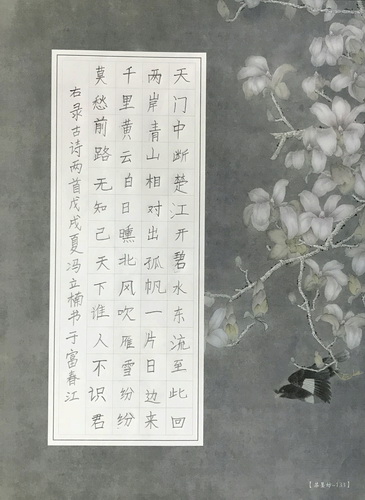 天门中断楚江开碧水东流至此回
两岸青山相对出孤帆一片日边来
千里黄云白日曛北风吹雁雪纷纷
莫愁前路无知己天下谁人不识君
右录古诗两首戊戌夏冯立楠书于富春江